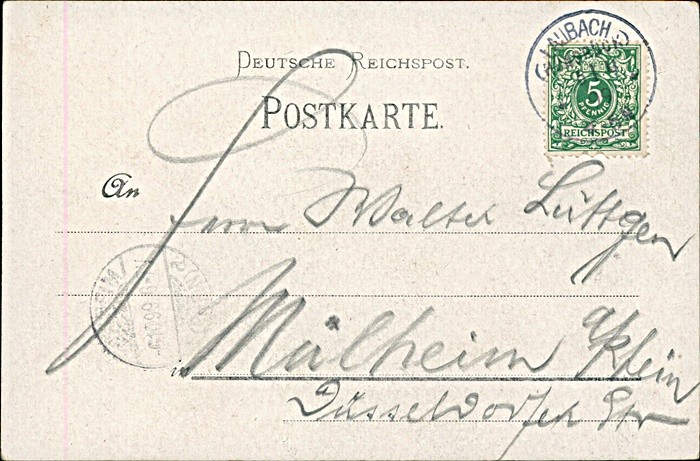 LAUBACH
DEUTSCHE REICHSPOST.
5
PFENNIG
REICHSPOST
POSTKARTE.
An
Herrn Walter Lüttgen
in Mülheim a/Rhein
Düsseldorfer Str